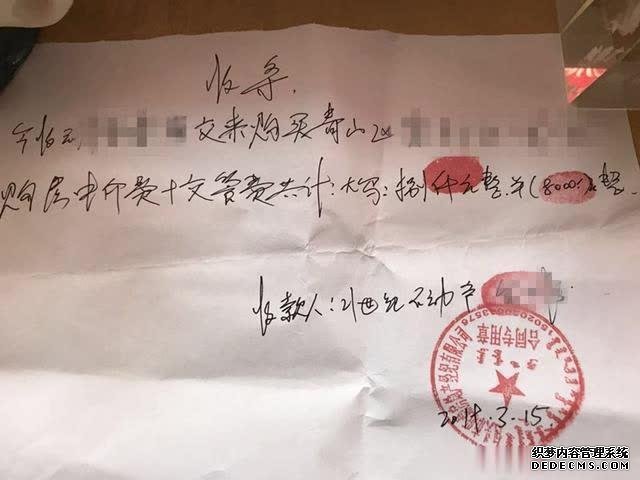 收条
今收到 交来购买青山区
购房中介费+交管费共计:大写:捌仟元整(8000元)整.
收款人:21世纪不动产
合同专用章
2019.3.15.
织梦内容管理系统
DEDECMS.COM